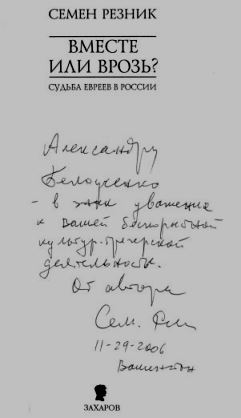 СЕМЕН РЕЗНИК
ВМЕСТЕ
ИЛИ ВРОЗЬ?
СУДЬБА ЕВРЕЕВ В РОССИИ
Александру
- в знак уважения
к вашей бескорыстной
культур-трегерской
деятельности.
От автора
Сем.
11-29-2006
Вашингтон
ЗАХАРОВ